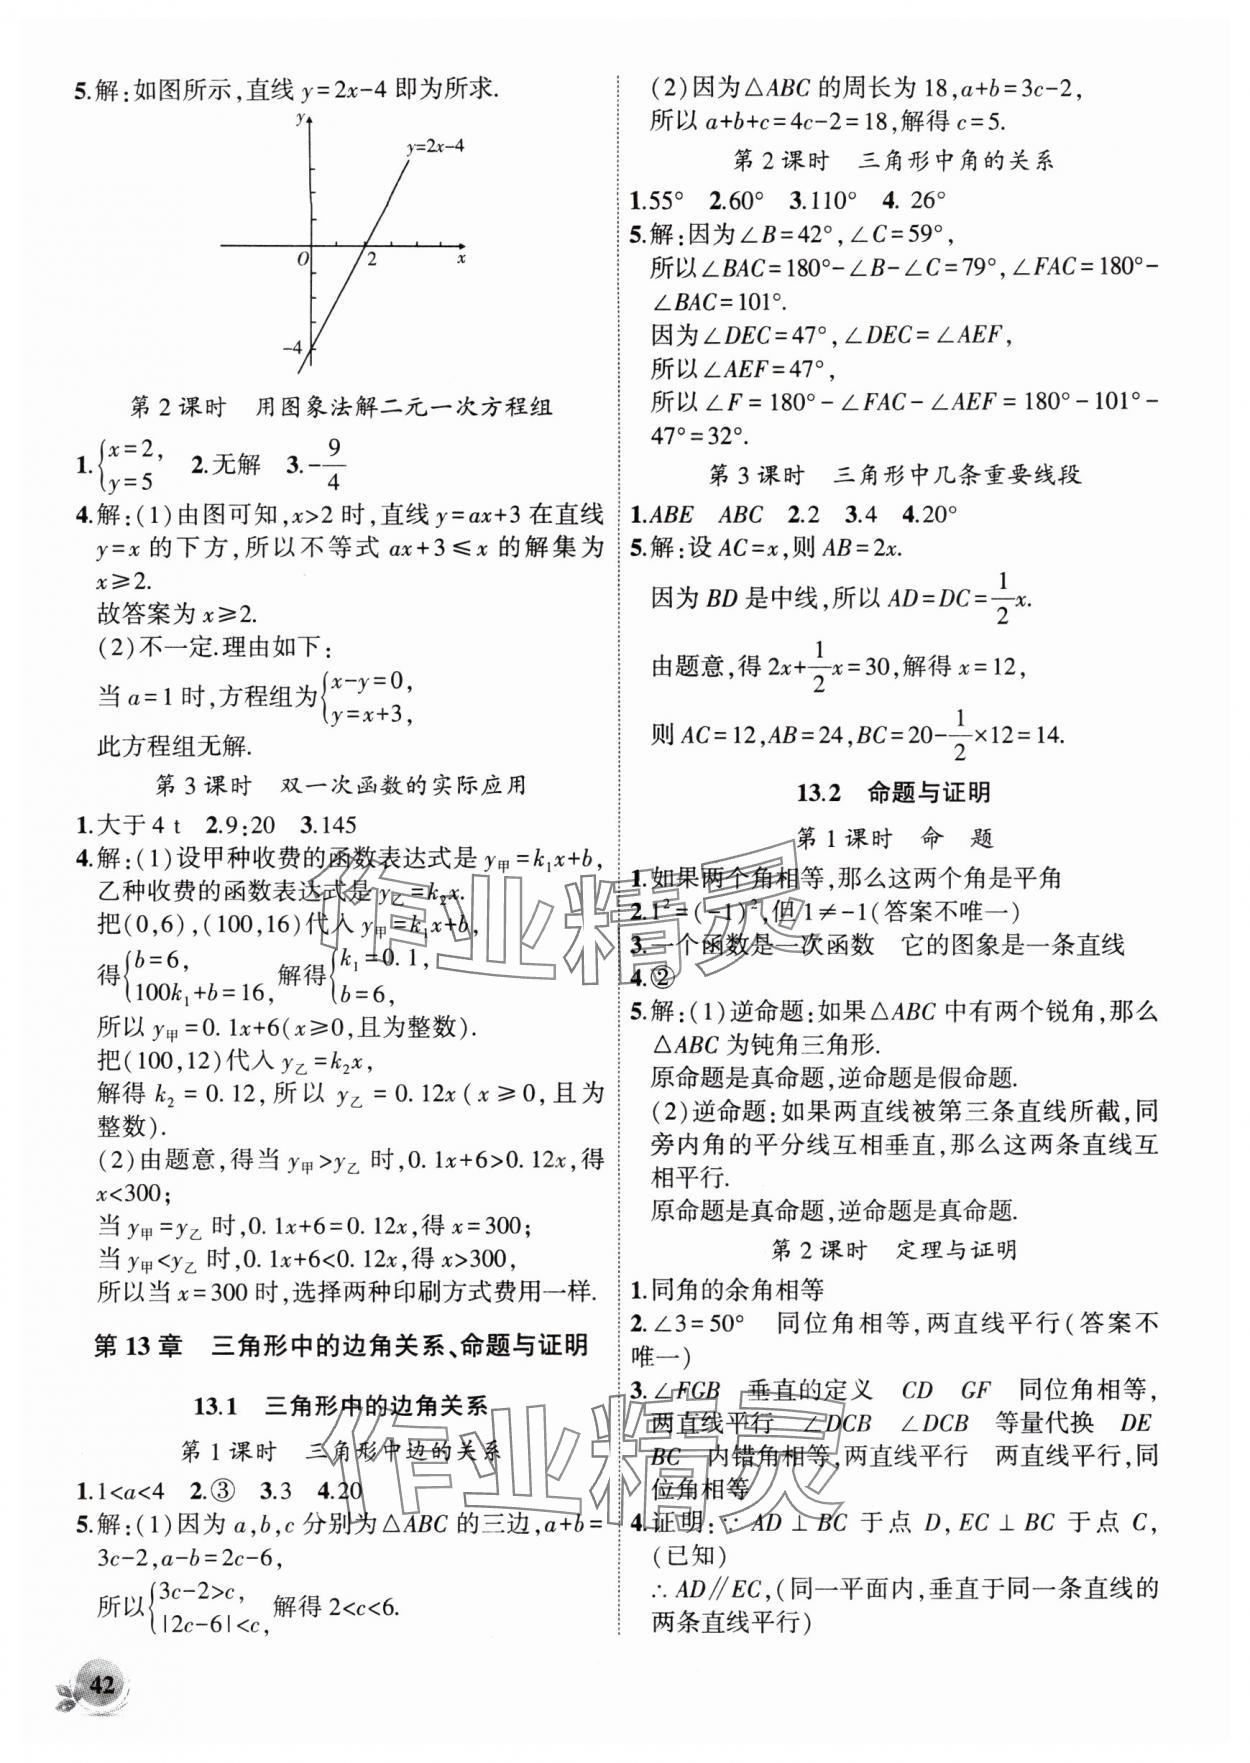 5.解:如图所示,直线 y=2x-4 即为所求.
y
y=2x-4
O 2 x
-4
第 2 课时 用图象法解二元一次方程组
1.{x=2, y=5 2.无解 3.-9/4
4.解:(1)由图可知,x>2 时,直线 y=ax+3 在直线
y=x 的下方,所以不等式 ax+3⩽x 的解集为
x⩾2.
故答案为 x⩾2.
(2)不一定.理由如下:
当 a=1 时,方程组为{x-y=0, y=x+3,
此方程组无解.
第 3 课时 双一次函数的实际应用
1.大于 4 t 2.9:20 3.145
4.解:(1)设甲种收费的函数表达式是 y甲=k₁x+b,
乙种收费的函数表达式是 y乙=k₂x.
把(0,6),(100,16)代入 y甲=k₁x+b,
得{b=6, 100k₁+b=16, 解得{k₁=0.1, b=6,
所以 y甲=0.1x+6(x⩾0,且为整数).
把(100,12)代入 y乙=k₂x,
解得 k₂=0.12,所以 y乙=0.12x(x⩾0,且为
整数).
(2)由题意,得当 y甲>y乙 时,0.1x+6>0.12x,得
x<300;
当 y甲=y乙 时,0.1x+6=0.12x,得 x=300;
当 y甲<y乙 时,0.1x+6<0.12x,得 x>300,
所以当 x=300 时,选择两种印刷方式费用一样.
第 13 章 三角形中的边角关系、命题与证明
13.1 三角形中的边角关系
第 1 课时 三角形中边的关系
1.1<a<4 2.③ 3.3 4.20
5.解:(1)因为 a,b,c 分别为△ABC 的三边,a+b=
3c-2,a-b=2c-6,
所以{3c-2>c, |2c-6|<c, 解得 2<c<6.
42
(2)因为△ABC 的周长为 18,a+b=3c-2,
所以 a+b+c=4c-2=18,解得 c=5.
第 2 课时 三角形中角的关系
1.55° 2.60° 3.110° 4. 26°
5.解:因为∠B=42°,∠C=59°,
所以∠BAC=180°-∠B-∠C=79°,∠FAC=180°-
∠BAC=101°.
因为∠DEC=47°,∠DEC=∠AEF,
所以∠AEF=47°,
所以∠F=180°-∠FAC-∠AEF=180°-101°-
47°=32°.
第 3 课时 三角形中几条重要线段
1.ABE ABC 2.2 3.4 4.20°
5.解:设 AC=x,则 AB=2x.
因为 BD 是中线,所以 AD=DC=1/2x.
由题意,得 2x+1/2x=30,解得 x=12,
则 AC=12,AB=24,BC=20-1/2×12=14.
13.2 命题与证明
第 1 课时 命 题
1.如果两个角相等,那么这两个角是平角
2.1²=(-1)²,但 1≠-1(答案不唯一)
3.一个函数是一次函数 它的图象是一条直线
4.②
5.解:(1)逆命题:如果△ABC 中有两个锐角,那么
△ABC 为钝角三角形.
原命题是真命题,逆命题是假命题.
(2)逆命题:如果两直线被第三条直线所截,同
旁内角的平分线互相垂直,那么这两条直线互
相平行.
原命题是真命题,逆命题是真命题.
第 2 课时 定理与证明
1.同角的余角相等
2.∠3=50° 同位角相等,两直线平行(答案不
唯一)
3.∠FGB 垂直的定义 CD GF 同位角相等,
两直线平行 ∠DCB ∠DCB 等量代换 DE
BC 内错角相等,两直线平行 两直线平行,同
位角相等
4.证明:∵AD⊥BC 于点 D,EC⊥BC 于点 C,
(已知)
∴AD∥EC,(同一平面内,垂直于同一条直线的
两条直线平行)
作业精灵
作业精灵